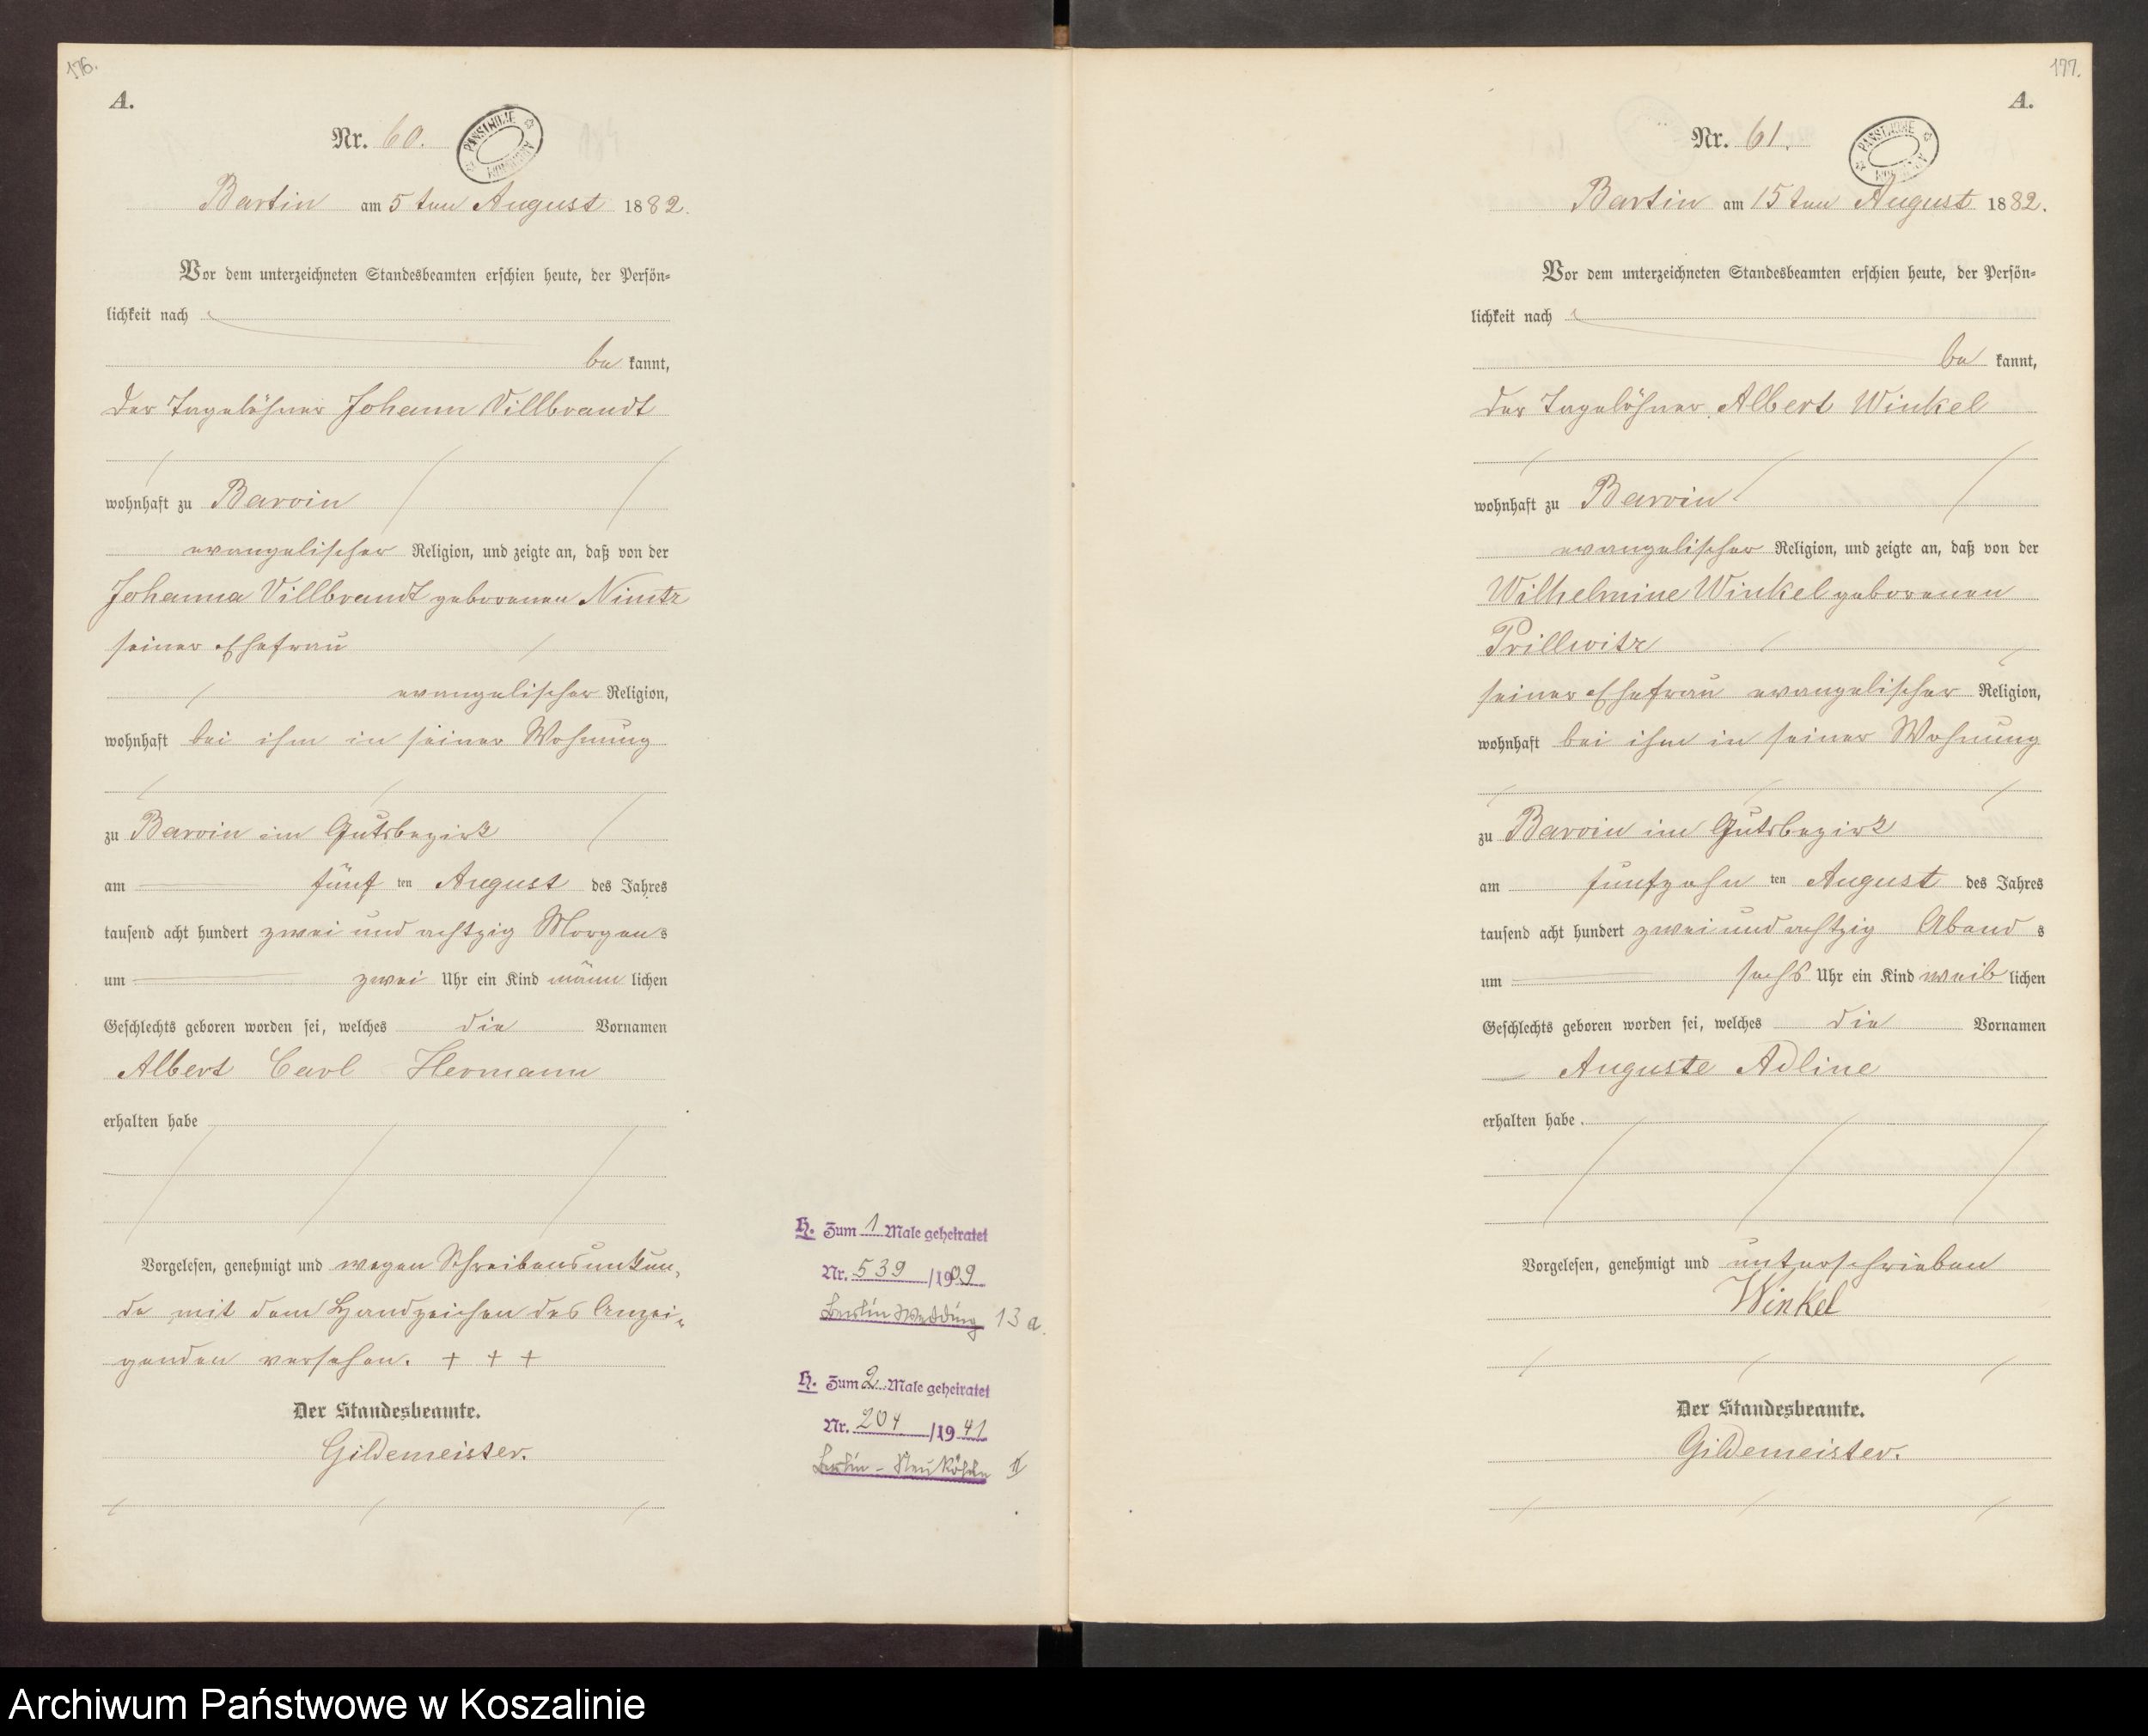 176.
A.
Nr. 60.
PAŃSTWOWE
ARCHIWUM
Bartin am 5 ten August 1882.
Vor dem unterzeichneten Standesbeamten erschien heute, der Persön=
lichkeit nach
be kannt,
der Tagelöhner Johann Villbrandt
wohnhaft zu Barvin
evangelischer Religion, und zeigte an, daß von der
Johanna Villbrandt geborenen Nimtz
seiner Ehefrau
evangelischer Religion,
wohnhaft bei ihm in seiner Wohnung
zu Barvin im Gutsbezirk
am fünf ten August des Jahres
tausend acht hundert zwei und achtzig Morgens
um zwei Uhr ein Kind männ lichen
Geschlechts geboren worden sei, welches die Vornamen
Albert Carl Hermann
erhalten habe
Vorgelesen, genehmigt und wegen Schreibensunkun-
de mit dem Handzeichen des Anzei-
genden versehen. + + +
Der Standesbeamte.
Gildemeister.
H. Zum 1 Male geheiratet
Nr. 539 /1909
Berlin Wedding 13 a.
H. Zum 2 Male geheiratet
Nr. 204 /1941
Berlin - Neukölln II
177.
A.
Nr. 61.
PAŃSTWOWE
Bartin am 15 ten August 1882.
Vor dem unterzeichneten Standesbeamten erschien heute, der Persön=
lichkeit nach
be kannt,
der Tagelöhner Albert Winkel
wohnhaft zu Barvin
evangelischer Religion, und zeigte an, daß von der
Wilhelmine Winkel geborenen
Prillwitz
seiner Ehefrau evangelischer Religion,
wohnhaft bei ihm in seiner Wohnung
zu Barvin im Gutsbezirk
am fünfzehn ten August des Jahres
tausend acht hundert zwei und achtzig Abend s
um sechs Uhr ein Kind weib lichen
Geschlechts geboren worden sei, welches die Vornamen
Auguste Adline
erhalten habe.
Vorgelesen, genehmigt und unterschrieben
Winkel
Der Standesbeamte.
Gildemeister.
Archiwum Państwowe w Koszalinie